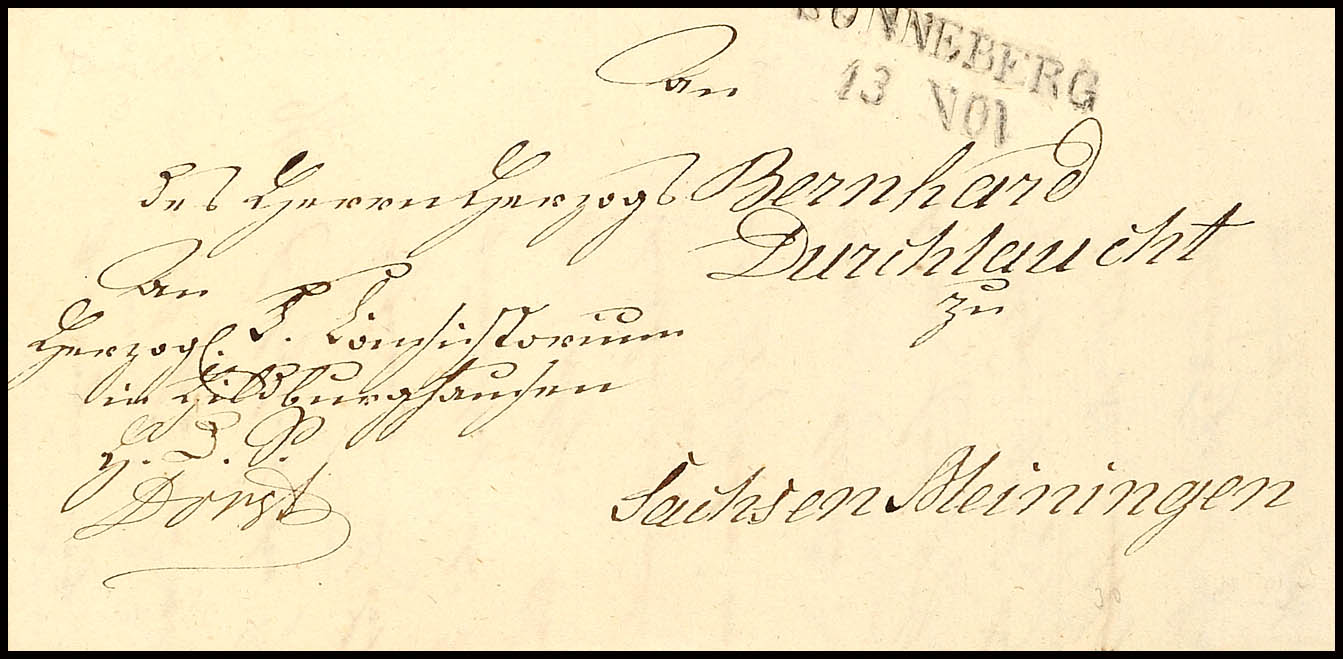 SONNEBERG
13 NOV
An
des Herrn Herzogs Bernhard
Durchlaucht
zu
Sachsen Meiningen
An
Herzogl. S. Consistorium
in Hildburghausen
H. S. S.
Dorst